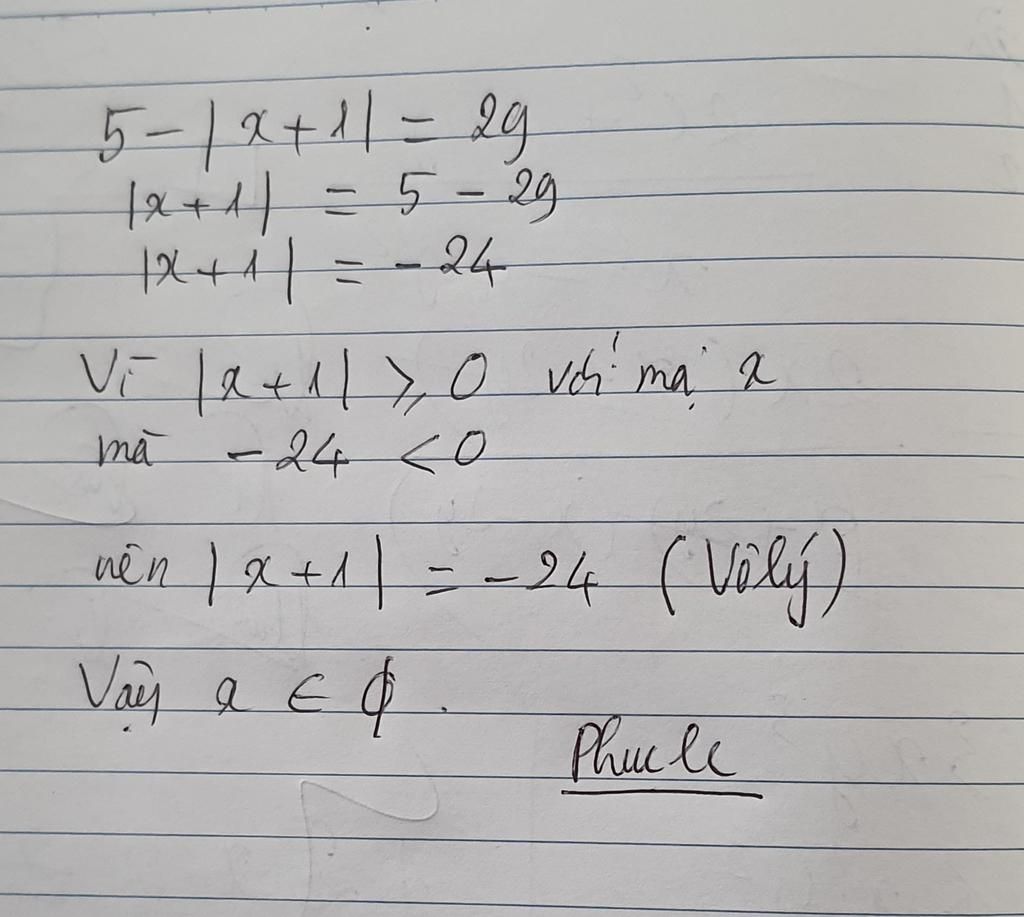 5 - |x + 1| = 29
|x + 1| = 5 - 29
|x + 1| = -24
Vì |x + 1| ≥ 0 với mọi x
mà -24 < 0
nên |x + 1| = -24 (Vô lý)
Vậy x ∈ ϕ.
Phucle